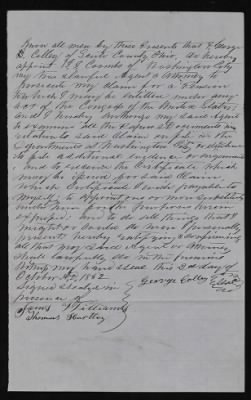 Know all men by these Presents that I George
D. Colley of Scioto County Ohio, do hereby
appoint J. J. Coombs of Washington City
my true & lawful Agent & Attorney to
prosecute my claim for a Pension
which I may be entitled under any
act of the Congress of the United States
and I hereby authorize my said Agent
to examine all the Papers & Documents
relative to said Claim on file in the
Departments at Washington City or elsewhere
to file additional evidence or arguments
and to receive the Certificate which
may be issued for said Claim
which Certificate I made payable to
myself &
until
and to do all things that I
might or could do were I personally
present hereby ratifying & confirming
all that my said Agent or Attorney
shall lawfully do in the premises
Witness my hand & seal this 2d day of
October A.D. 1862
Signed & sealed in George Colley
presence of Seal
James Williams
Thomas Hartley